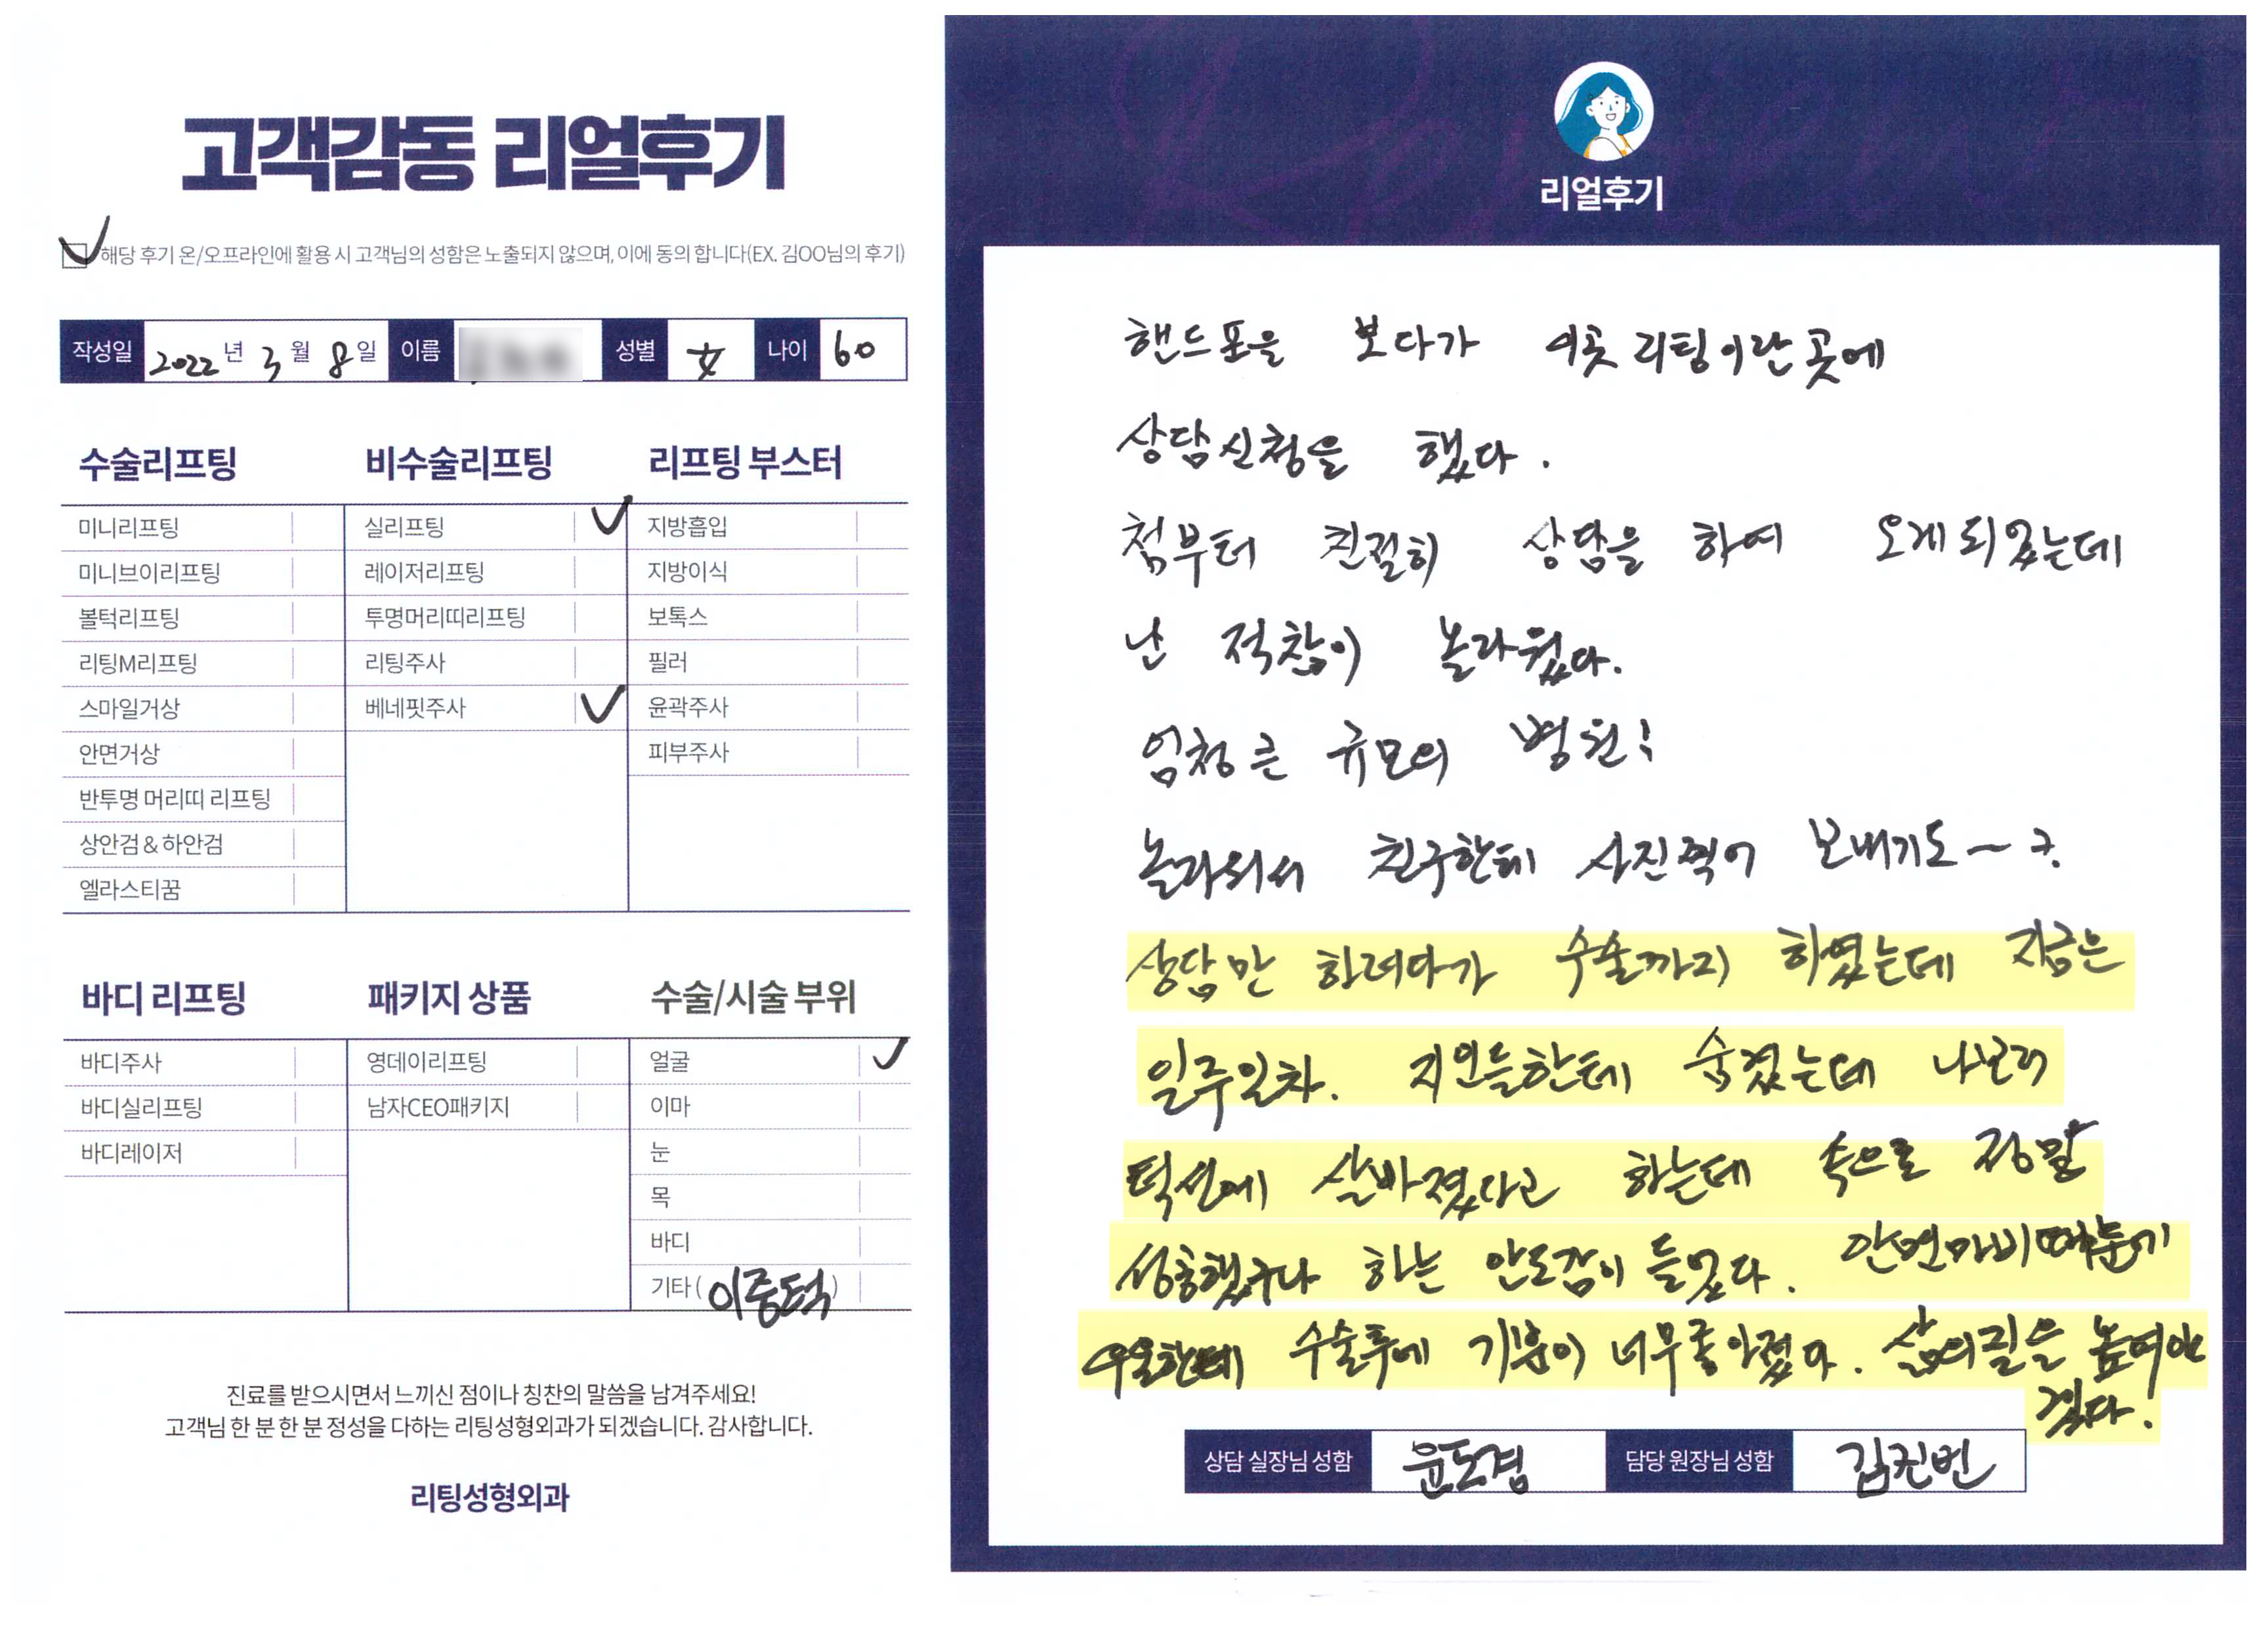 고객감동 리얼후기
해당 후기 온/오프라인에 활용 시 고객님의 성함은 노출되지 않으며, 이에 동의 합니다(EX. 김OO님의 후기)
작성일 2022년 3월 8일 이름 성별 女 나이 60
수술리프팅 비수술리프팅 리프팅 부스터
미니리프팅 실리프팅 지방흡입
미니브이리프팅 레이저리프팅 지방이식
볼턱리프팅 투명머리띠리프팅 보톡스
리팅M리프팅 리팅주사 필러
스마일거상 베네핏주사 윤곽주사
안면거상 피부주사
반투명 머리띠 리프팅
상안검 & 하안검
엘라스티꿈
바디 리프팅 패키지 상품 수술/시술 부위
바디주사 영데이리프팅 얼굴
바디실리프팅 남자CEO패키지 이마
바디레이저 눈
목
바디
기타 ( 이중턱 )
진료를 받으시면서 느끼신 점이나 칭찬의 말씀을 남겨주세요!
고객님 한 분 한 분 정성을 다하는 리팅성형외과가 되겠습니다. 감사합니다.
리팅성형외과
리얼후기
핸드포을 보다가 이곳 리팅이란 곳에
상담신청을 했다.
첨부터 친절히 상담을 하여 오게되었는데
난 적잖이 놀라웠다.
엄청 큰 규모의 병원!
놀라워서 친구한테 사진찍어 보내기도~ㅋ.
상담만 하려다가 수술까지 하였는데 지금은
일주일차. 지인들한테 숨겼는데 나보러
턱선에 살빠졌다고 하는데 속으로 정말
성공했구나 하는 안도감이 들었다. 안면마비때문에
우울한데 수술후에 기분이 너무좋아졌다. 삶의질을 높여야
겠다!
상담 실장님 성함 윤도경 담당 원장님 성함